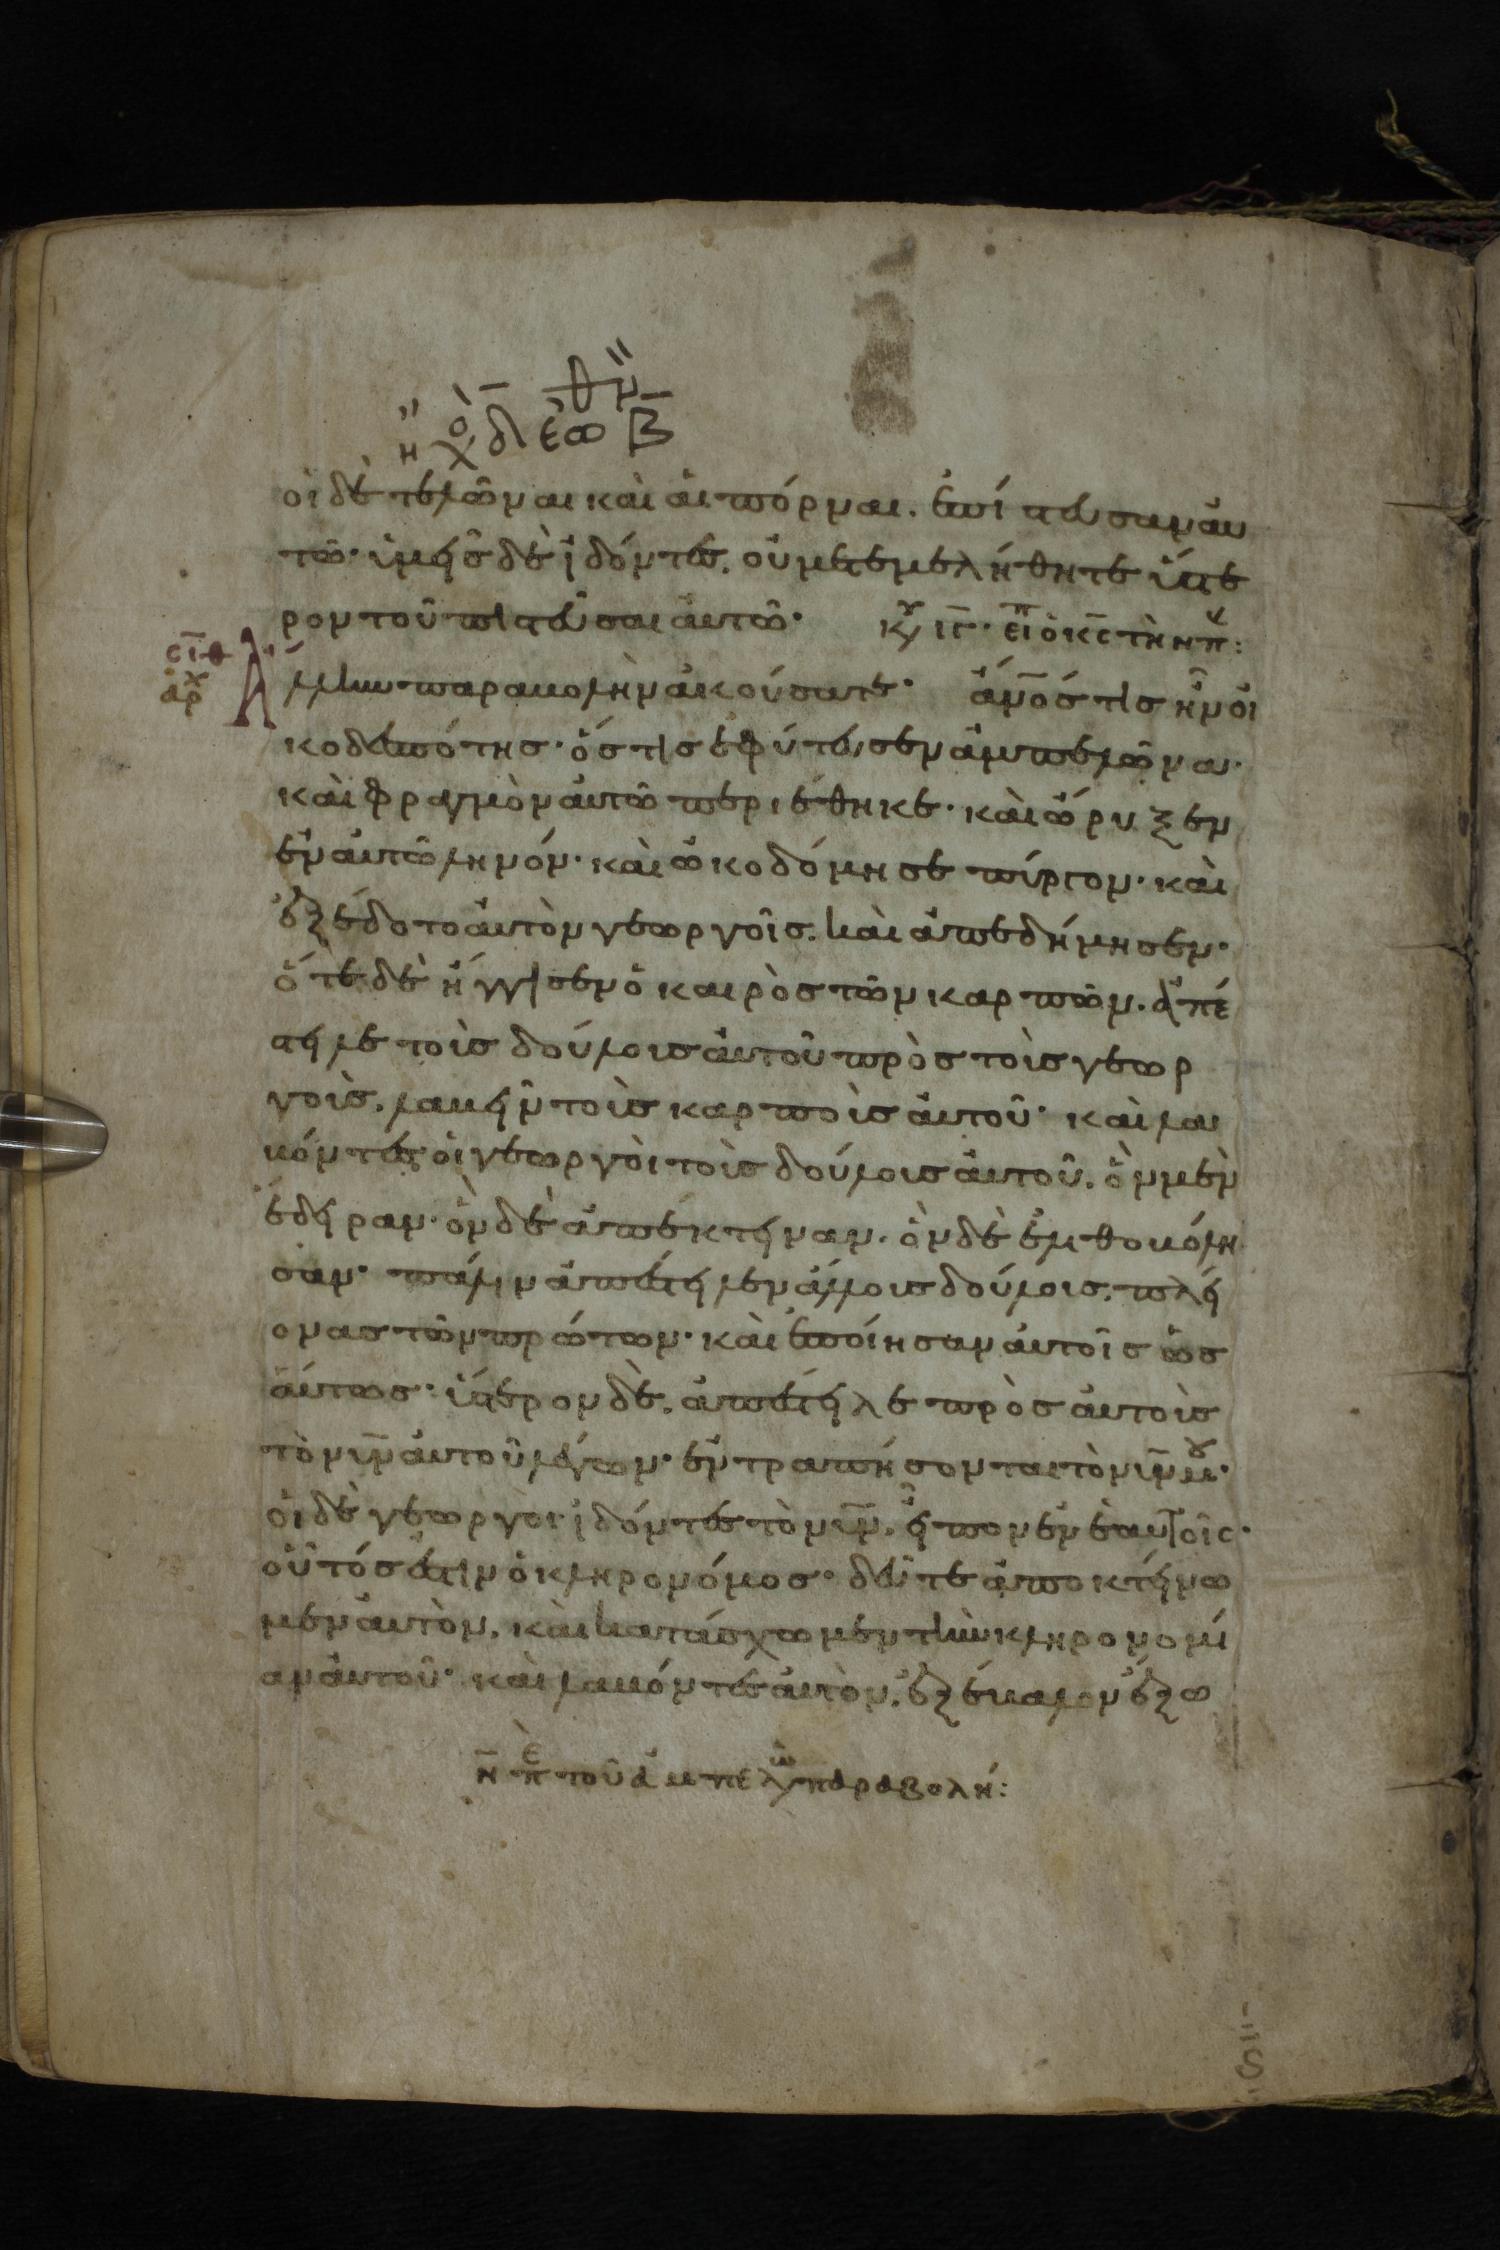 οἱ δὲ τελῶναι καὶ αἱ πόρναι. ἐπίστευσαν αὐ
τῶ· ὑμεῖς δὲ ἰδόντες, οὐ μετεμελήθητε ὕστε
ρον τοῦ πιστεῦσαι αὐτῶ· κυ ιγ· εἶπ ὁ κς τὴν π:
σιθ
ἀρχ
Ἄλλην παραβολὴν ἀκούσατε· ἄνος τίς ἦν οἰ
κοδεσπότης· ὅστις ἐφύτευσεν ἀμπελῶνα·
καὶ φραγμὸν αὐτῶ περιέθηκε· καὶ ὤρυξεν
ἐν αὐτῶ ληνόν· καὶ ὠκοδόμησε πύργον· καὶ
ἐξέδοτο αὐτὸν γεωργοῖς. καὶ ἀπεδήμησεν·
ὅτε δὲ ἤγγισεν ὁ καιρὸς τῶν καρπῶν. ἀπέ
στειλε τοὺς δούλους αὐτοῦ πρὸς τοὺς γεωρ
γοὺς. λαβεῖν τοὺς καρποὺς αὐτοῦ· καὶ λα
βόντες οἱ γεωργοὶ τοὺς δούλους αὐτοῦ. ὃν μὲν
ἔδειραν· ὃν δὲ ἀπέκτειναν. ὃν δὲ ἐλιθοβόλη
σαν· πάλιν ἀπέστειλεν ἄλλους δούλους. πλεί
ονας τῶν πρώτων· καὶ ἐποίησαν αὐτοῖς ὡς
αύτως· ὕστερον δὲ. ἀπέστειλε πρὸς αὐτοὺς
τὸν υν αὐτοῦ λέγων· ἐντραπήσονται τὸν υν μου·
οἱ δὲ γεωργοὶ ἰδόντες τὸν υν. εἶπον ἐν ἑαυτοῖς·
οὗτός ἐστιν ὁ κληρονόμος· δεῦτε ἀποκτείνω
μεν αὐτὸν. καὶ κατάσχωμεν τὴν κληρονομί
αν αὐτοῦ· καὶ λαβόντες αὐτὸν. ἐξέβαλον ἔξω
η πε τοῦ ἀμπελῶ παραβολή: